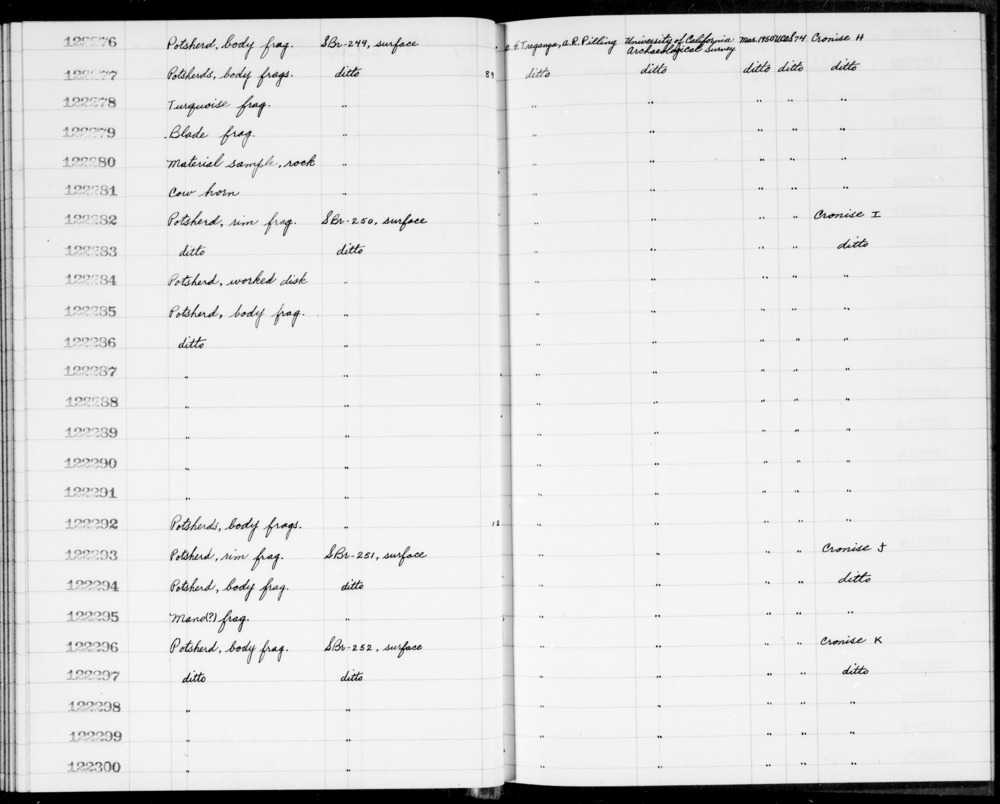 122276 Potsherd, body frag. SBr-249, surface A.E. Treganza, A.R. Pilling University of California Archaeological Survey Mar. 1950 UCAS 74 Cronise H
122277 Potsherds, body frags. ditto 89 ditto ditto ditto ditto ditto
122278 Turquoise frag. " " " " " "
122279 Blade frag. " " " " " "
122280 Material sample, rock " " " " " "
122281 Cow horn " " " " " "
122282 Potsherd, rim frag. SBr-250, surface " " " " Cronise I
122283 ditto ditto " " " " ditto
122284 Potsherd, worked disk " " " " " "
122285 Potsherd, body frag. " " " " " "
122286 ditto " " " " " "
122287 " " " " " " "
122288 " " " " " " "
122289 " " " " " " "
122290 " " " " " " "
122291 " " " " " " "
122292 Potsherds, body frags. " 12 " " " " "
122293 Potsherd, rim frag. SBr-251, surface " " " " Cronise J
122294 Potsherd, body frag. ditto " " " " ditto
122295 Mano(?) frag. " " " " " "
122296 Potsherd, body frag. SBr-252, surface " " " " Cronise K
122297 ditto ditto " " " " ditto
122298 " " " " " " "
122299 " " " " " " "
122300 " " " " " " "